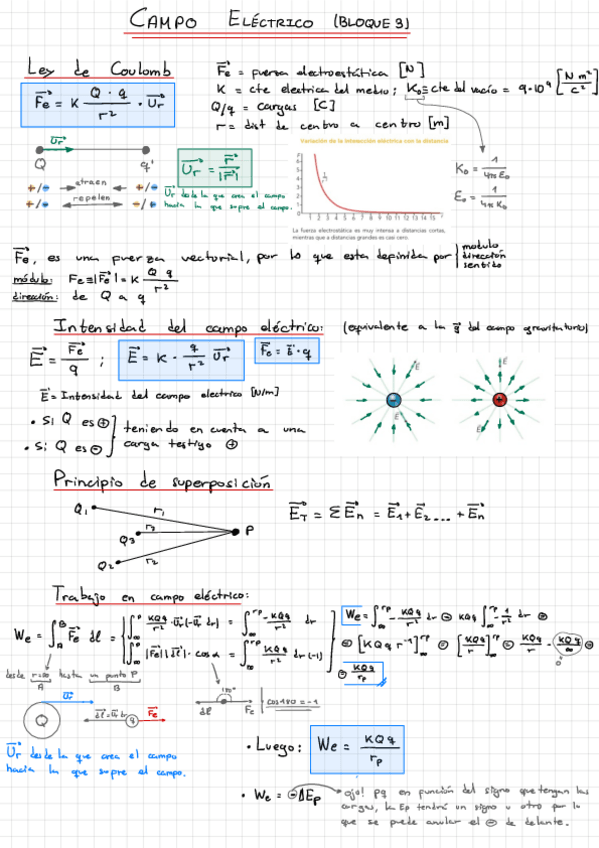 CAMPO ELÉCTRICO (BLOQUE 3)
Ley de Coulomb
Fe = K Q · q / r² · Ur
Fe = fuerza electroestática [N]
K = cte electrica del medio; K₀ = cte del vacío = 9·10⁹ [N m² / C²]
Q/q = cargas [C]
r = dist de centro a centro [m]
Ur
Q q
Ur = r / |r|
+/- atraen +/-
+/- repelen +/-
Ur desde la que crea el campo
hacia la que sufre el campo.
Variación de la interacción eléctrica con la distancia
7
6
5
4
3
2
1
0
1 2 3 4 5 6 7 8 9 10 11 12 13 14 15
La fuerza electrostática es muy intensa a distancias cortas,
mientras que a distancias grandes es casi cero.
K₀ = 1 / 4π E₀
E₀ = 1 / 4π K₀
Fe, es una fuerza vectorial, por lo que esta definida por
modulo
dirección
sentido
módulo: Fe ≡ |Fe| = K Q q / r²
dirección: de Q a q
Intensidad del campo eléctrico: (equivalente a la g del campo gravitatorio)
E = Fe / q ; E = K · q / r² Ur
Fe = E · q
E = Intensidad del campo electrico [N/m]
• Si Q es ⊕
• Si Q es ⊖
teniendo en cuenta a una
carga testigo ⊕
E
E
-
+
E
E
Principio de superposición
Q₁ r₁
Q₃ r₃ P
Q₂ r₂
E_T = Σ En = E₁ + E₂ ... + En
Trabajo en campo eléctrico:
We = ∫_A^B Fe dl = ∫_∞^P KQq / r² · Ur (-Ur dr) = ∫_∞^rp -KQq / r² dr
∫_∞^P |Fe| |dl| · cos α = ∫_∞^rp KQq / r² dr (-1)
We = ∫_∞^rp - KQq / r² dr ⊖ KQq ∫_∞^rp - 1 / r² dr ⊜
⊜ [KQq r⁻¹]_∞^rp ⊜ [KQq / r]_∞^rp ⊜ KQq / rp - KQq / ∞
0
⊜ KQq / rp
desde r=∞ hasta un punto P
A B
Ur
Q dl = -Ur dr q Fe
180°
dl Fe cos180 = -1
Ur desde la que crea el campo
hacia la que sufre el campo.
• Luego: We = KQq / rp
• We = ⊖ΔEp
ojo! pq en función del signo que tengan las
cargas, la Ep tendrá un signo u otro por lo
que se puede anular el ⊖ de delante.